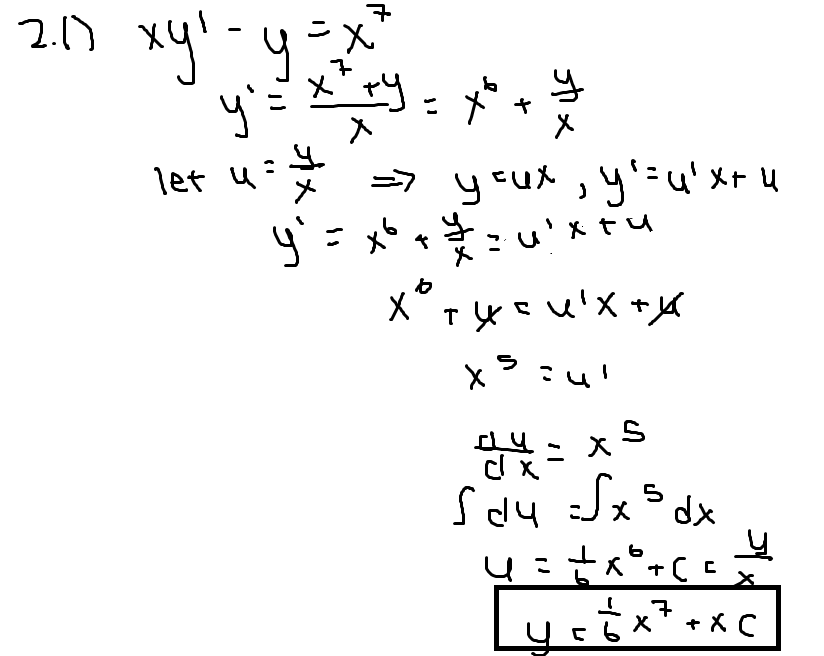 2.1) xy' - y = x^7
y' = (x^7 + y)/x = x^6 + y/x
let u = y/x ⇒ y = ux, y' = u'x + u
y' = x^6 + y/x = u'x + u
x^6 + u = u'x + u
x^5 = u'
du/dx = x^5
∫ du = ∫ x^5 dx
u = 1/6 x^6 + C = y/x
y = 1/6 x^7 + xC